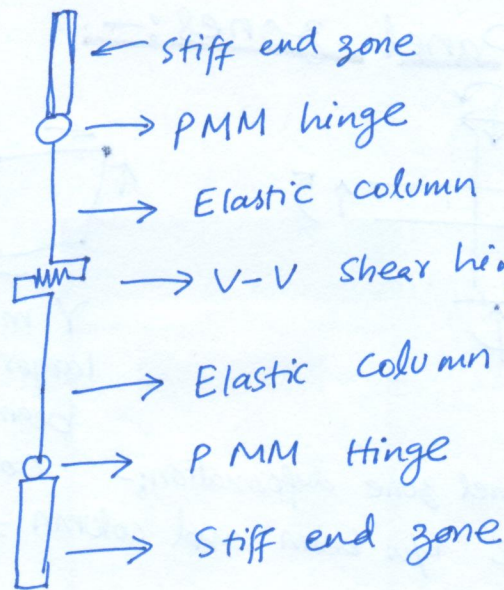 stiff end zone
PMM hinge
Elastic column
V-V shear hin
Elastic column
PMM Hinge
Stiff end zone